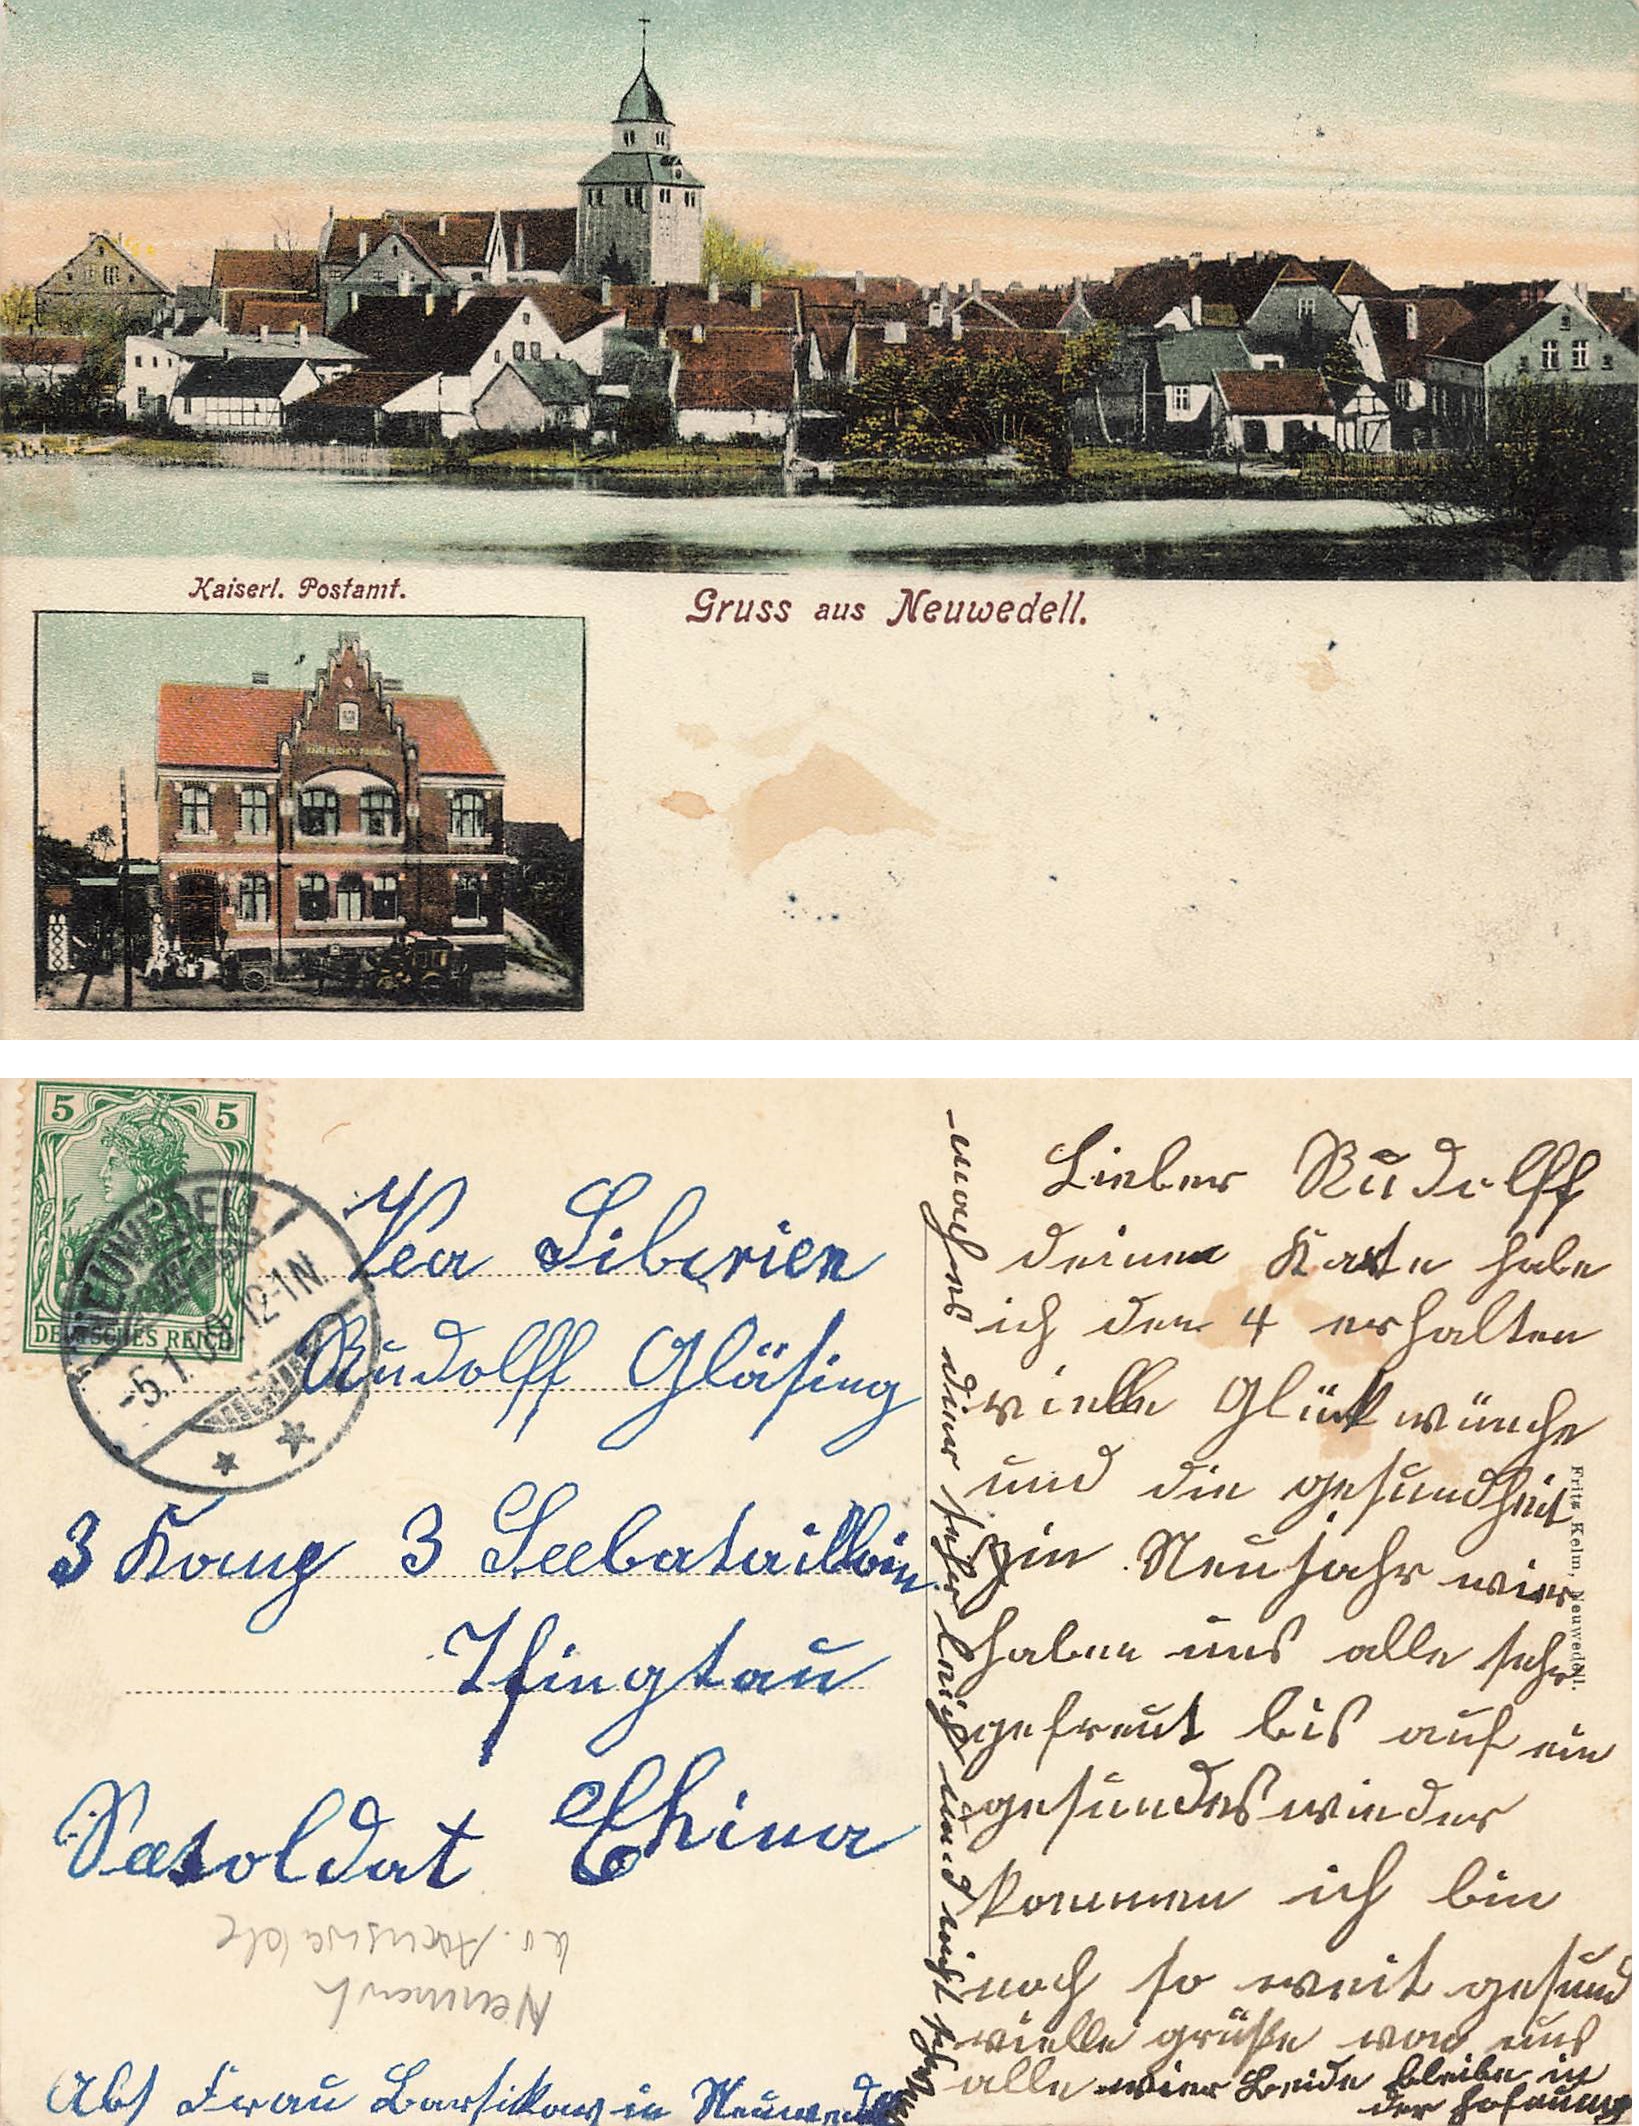 Kaiserl. Postamt.
Gruss aus Neuwedell.
5 5
DEUTSCHES REICH
NEUWEDELL
-5.1.0 12-1N
Via Siberien
Rudolff Gläsing
3 Komp 3 Seebataillon
Tsingtau
China
Seesoldat
Neumark
Kr. Arnswalde
Abs Frau Barsikow in Neuwedell
Lieber Rudolff
deine Karte habe
ich den 4 erhalten
vielle Glückwünche
und die gesundheit
zin Neujahr wier
haben uns alle sehr
gefreut bis auf ein
gesundes wieder
kommen ich bin
noch so weit gesund
vielle grüße von uns
alle wier Beide bleibe in
der hofnung
Fritz Kelm, Neuwedell.